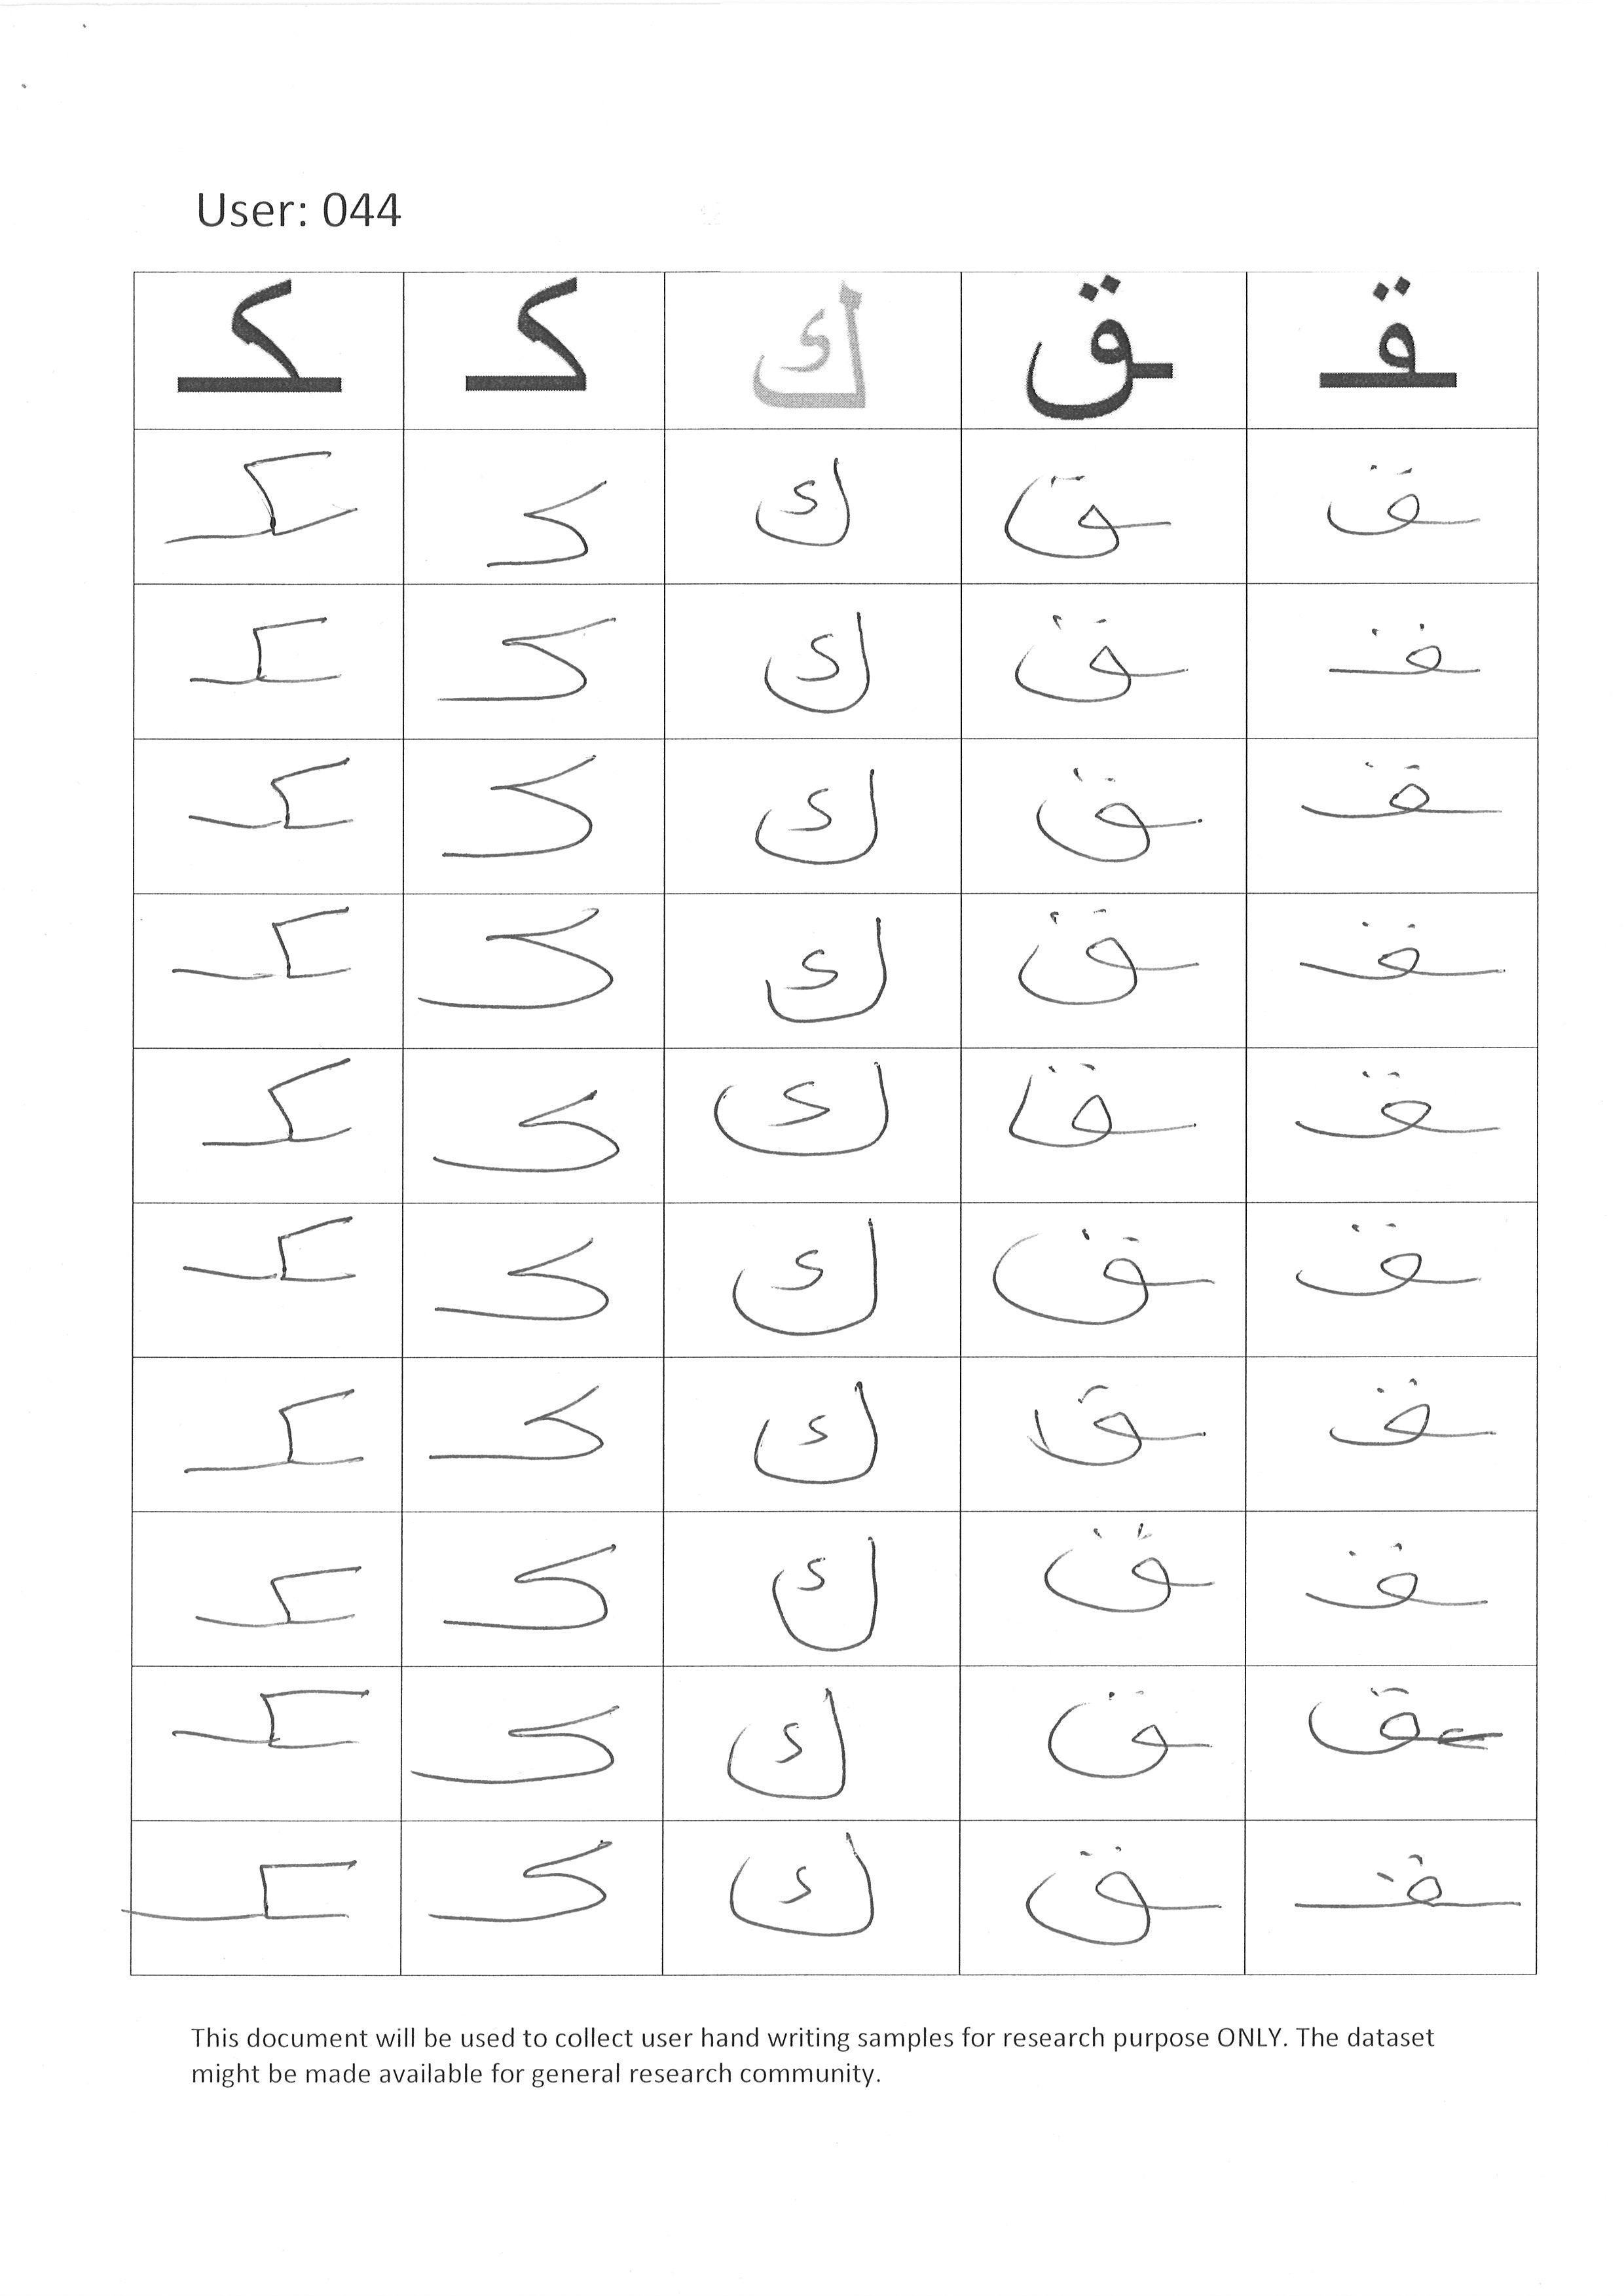 User: 044
ـقـ ـق ك كـ ـكـ
ـقـ ـق ك كـ ـكـ
ـقـ ـق ك كـ ـكـ
ـقـ ـق ك كـ ـكـ
ـقـ ـق ك كـ ـكـ
ـقـ ـق ك كـ ـكـ
ـقـ ـق ك كـ ـكـ
ـقـ ـق ك كـ ـكـ
ـقـ ـق ك كـ ـكـ
ـقـ ـق ك كـ ـكـ
ـقـ ـق ك كـ ـكـ
This document will be used to collect user hand writing samples for research purpose ONLY. The dataset
might be made available for general research community.